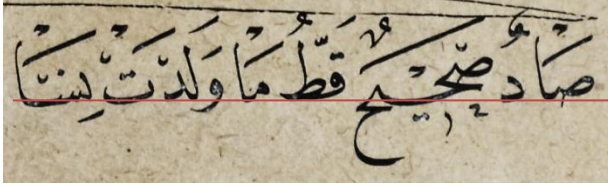 صَادُ صَحِيْحٌ قَطُّ مَا وَلَدَتْ بِنْتَا